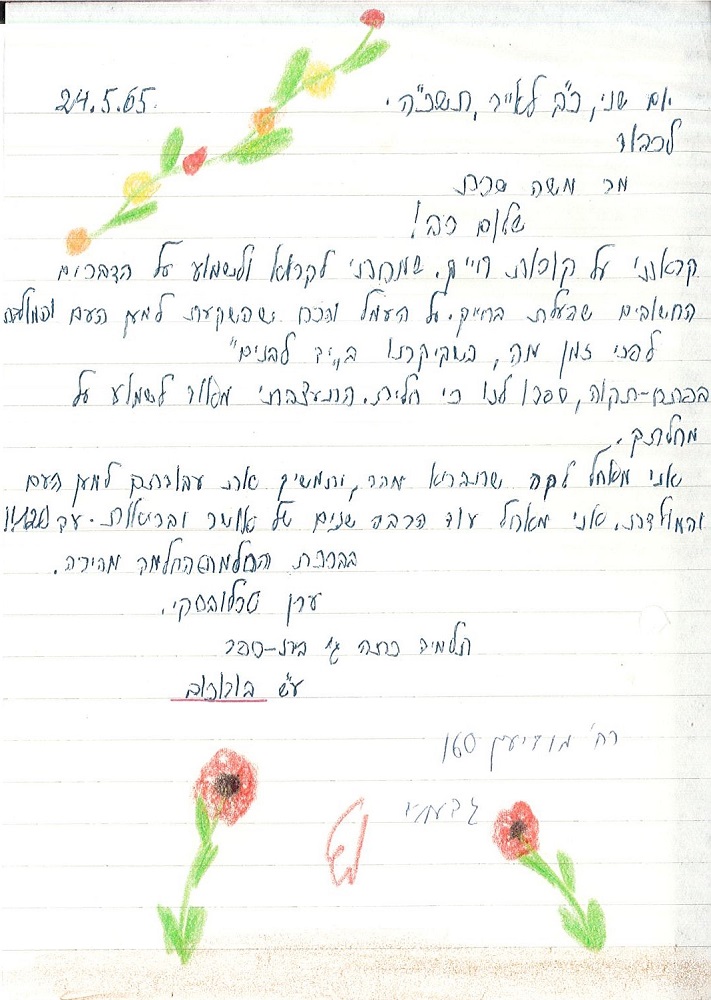 יום שני, כ"ב לאייר, תשכ"ה. 24.5.65.
לכבוד
מר משה סנה
שלום רב!
קראתי על קורות חייך. שמחתי לקרוא ולשמוע על הדברים
החשובים שפעלת בחייך. על העמל והכח שהשקעת למען העם והמולדת
לפני זמן מה, כשביקרנו ב"יד לבנים"
בפתח-תקוה, ספרו לנו כי חלית. התעצבתי מאוד לשמוע על
מחלתך.
אני מאחל לך שתבריא מהר, ותמשיך את עבודתך למען העם
והמולדת. אני מאחל עוד הרבה שנים של אושר ובריאות. עד 120
בברכת החלמה מהירה.
ערן
תלמיד כתה ג' בית-ספר
ע"ש בורוכוב
רח' מודיעין 160
גבעתיים